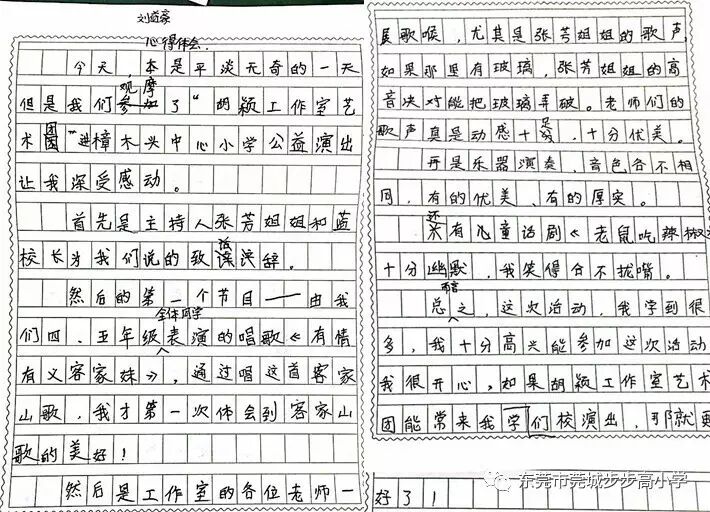 刘益豪
心得体会
今天,本是平淡无奇的一天
但是我们观摩了"胡颖工作室艺
术团"进樟木头中心小学公益演出
让我深受感动。
首先是主持人张芳姐姐和蓝
校长为我们说的致辞。
然后的第一个节目——由我
们四、五年级全体同学表演的唱歌《有情
有义客家妹》,通过唱这首客家
山歌,我才第一次体会到客家山
歌的美好!
然后是工作室的各位老师一
展歌喉,尤其是张芳姐姐的歌声
如果那里有玻璃,张芳姐姐的高
音决对能把玻璃弄破。老师们的
歌声真是动感十足,十分优美。
再是乐器演奏,音色各不相
同,有的优美、有的厚实。
还有儿童话剧《老鼠吃辣椒》
十分幽默,我笑得合不拢嘴。
总而言之,这次活动,我学到很
多,我十分高兴能参加这次活动
我很开心,如果胡颖工作室艺术
团能常来我们学校演出,那就更
好了!
东莞市莞城步步高小学